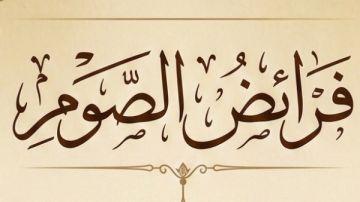 فَرَائِضُ الصَّوْمِ